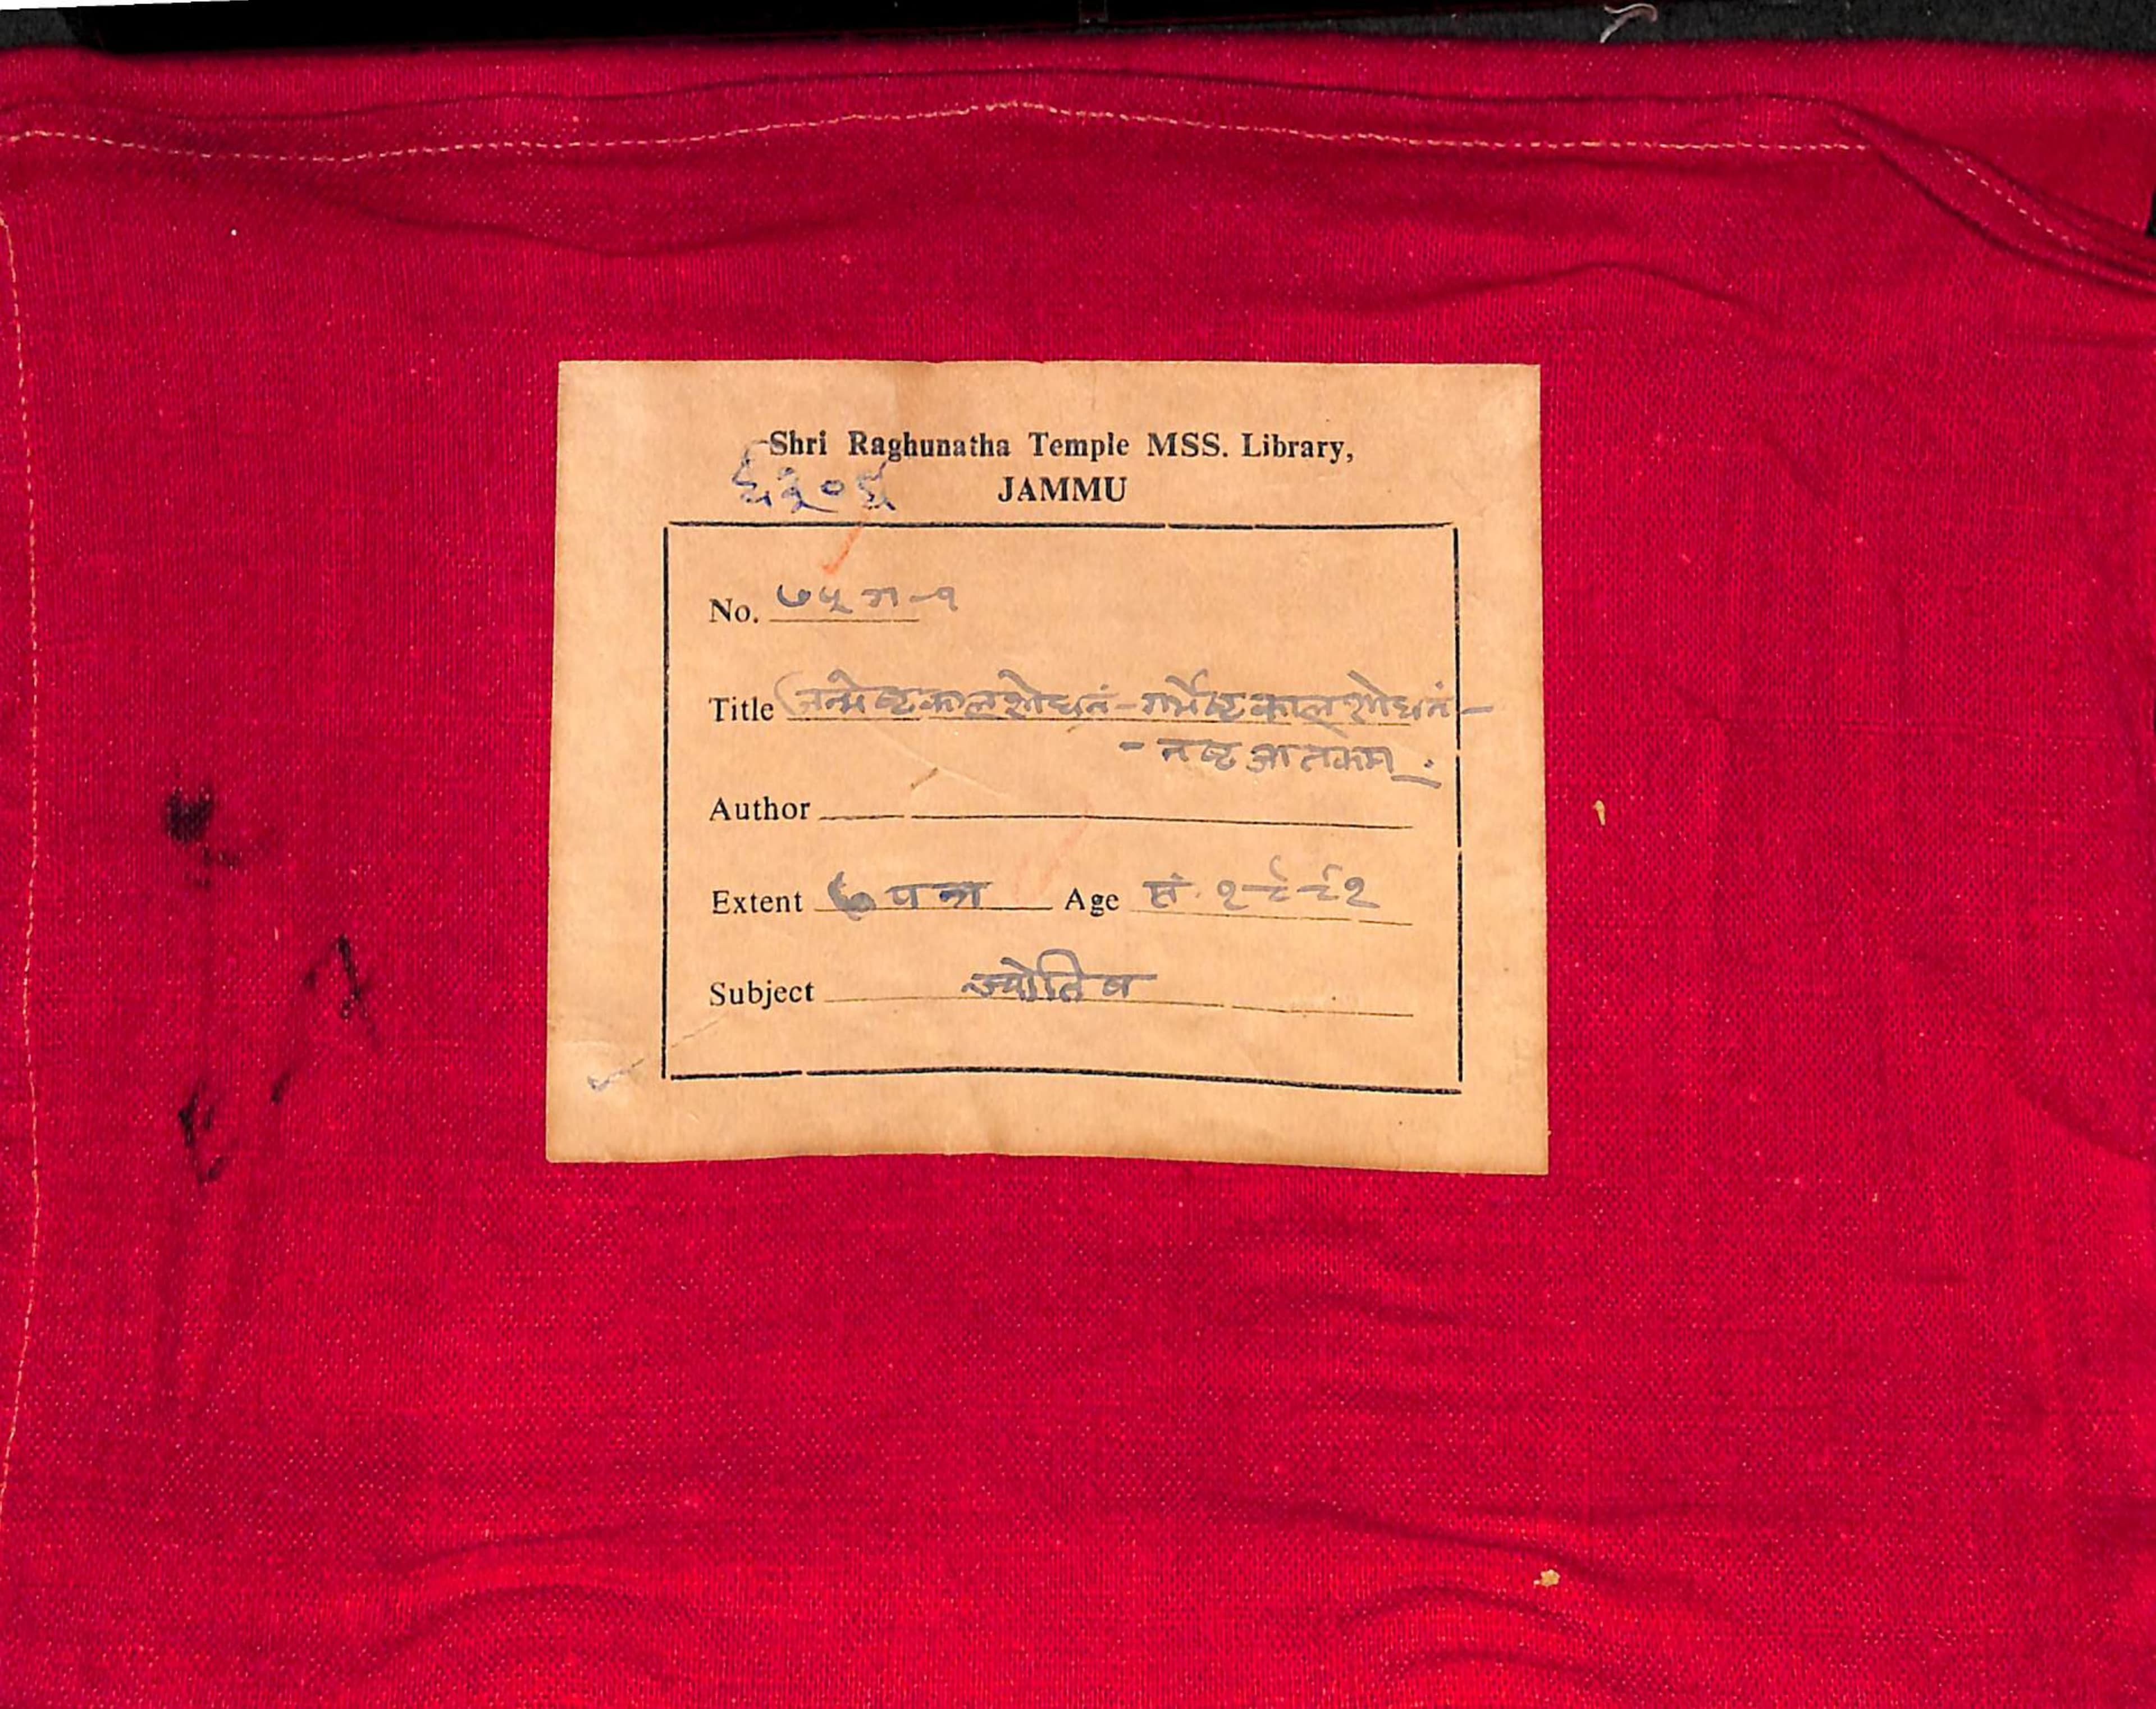 Shri Raghunatha Temple MSS. Library,
६३०६ JAMMU
No. ७५ ग-१
Title जन्मेष्टकालशोधनं-गर्भेष्टकालशोधनं-
- नष्टजातकम्.
Author
Extent पत्र Age सं. १८८१
Subject ज्योतिष